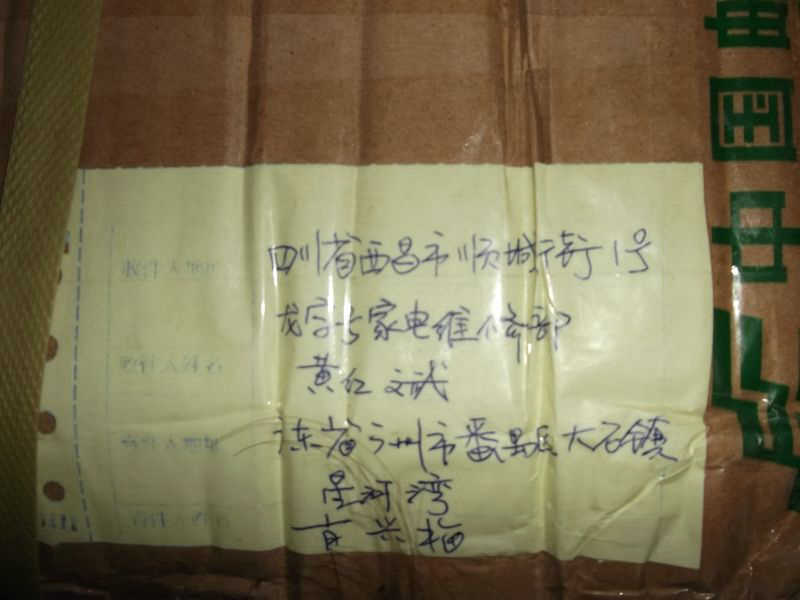 收件人地址 四川省西昌市顺城街1号
龙字号家电维修部
收件人姓名 黄仁文武
广东省广州市番禺区大石镇
寄件人地址
星河湾
寄件人姓名 肖兴梅
国中